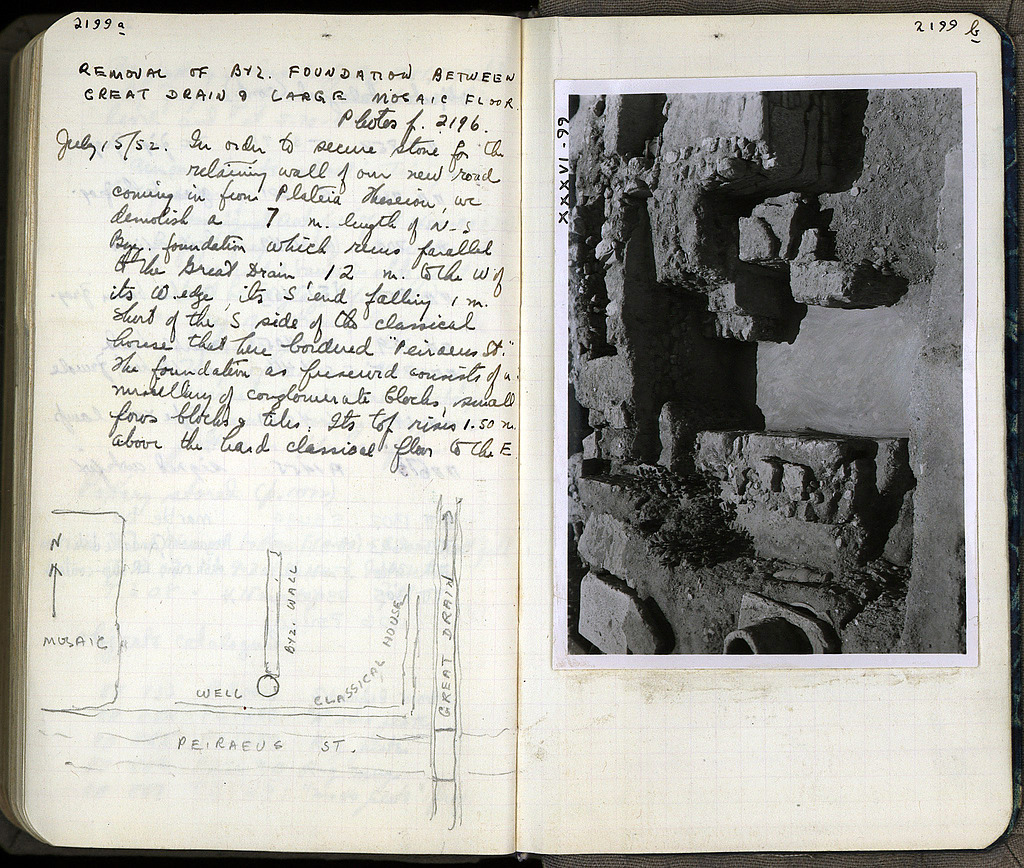 2199a
REMOVAL OF BYZ. FOUNDATION BETWEEN
GREAT DRAIN & LARGE MOSAIC FLOOR.
Photos p. 2196.
July 15/52. In order to secure stone for the
retaining wall of our new road
coming in from Plateia Theseion, we
demolish a 7 m. length of N-S
Byz. foundation which runs parallel
to the Great Drain 12 m. to the W of
its W. edge its S end falling 1 m.
short of the S side of the classical
house that here bordered "Peiraeus St."
The foundation as preserved consists of a
miscellany of conglomerate blocks, small
poros blocks & tiles. Its top rises 1.50 m
above the hard classical floor to the E.
N
MOSAIC
BYZ. WALL
WELL
CLASSICAL HOUSE
GREAT DRAIN
PEIRAEUS ST.
2199 b
XXXVI-99